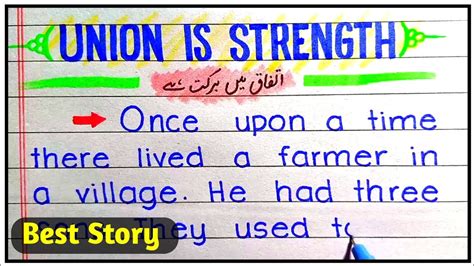 UNION IS STRENGTH
اتفاق میں برکت ہے
Once upon a time
there lived a farmer in
a village. He had three
They used to
Best Story